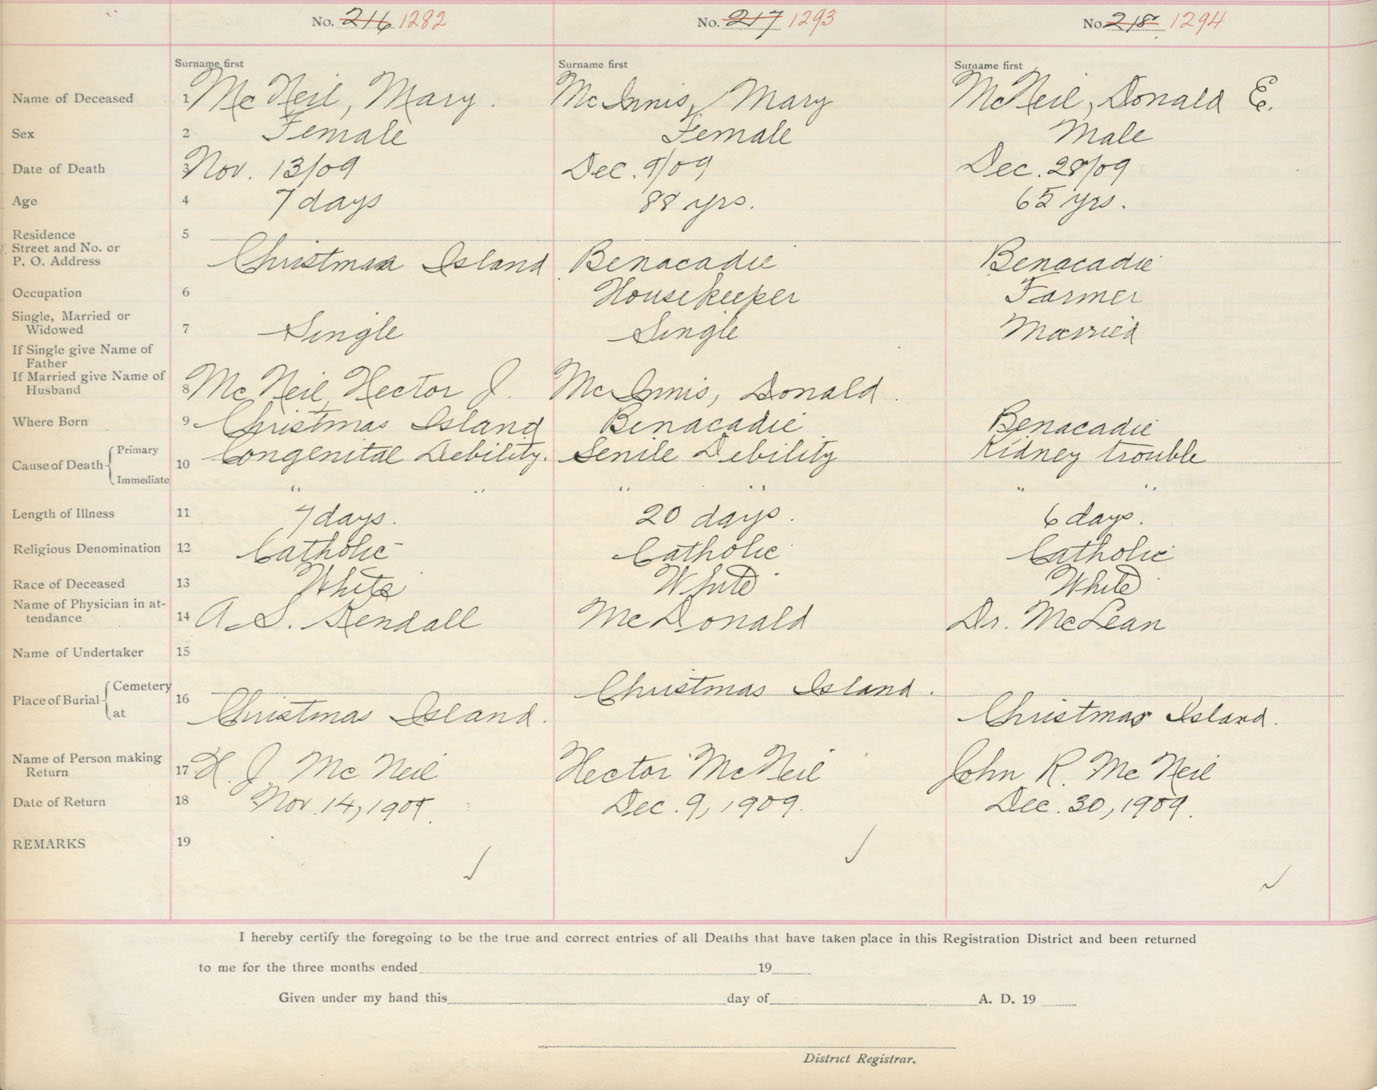 No. 216 1282 No. 217 1293 No. 218 1294
Surname first Surname first Surname first
Name of Deceased 1 McNeil, Mary. McInnis, Mary McNeil, Donald E.
Sex 2 Female Female Male
Date of Death 3 Nov. 13/09 Dec. 9/09 Dec. 28/09
Age 4 7 days 88 yrs. 65 yrs.
Residence 5
Street and No. or
P. O. Address Christmas Island Benacadie Benacadie
Occupation 6 Housekeeper Farmer
Single, Married or
Widowed 7 Single Single Married
If Single give Name of
Father
If Married give Name of
Husband 8 McNeil, Hector J. McInnis, Donald.
Where Born 9 Christmas Island Benacadie Benacadie
Cause of Death Primary 10 Congenital Debility. Senile Debility Kidney trouble
Immediate " " " " " "
Length of Illness 11 7 days. 20 days. 6 days.
Religious Denomination 12 Catholic Catholic Catholic
Race of Deceased 13 White White White
Name of Physician in at-
tendance 14 A. S. Kendall McDonald Dr. McLean
Name of Undertaker 15
Place of Burial Cemetery 16
at Christmas Island. Christmas Island. Christmas Island.
Name of Person making
Return 17 H. J. McNeil Hector McNeil John R. McNeil
Date of Return 18 Nov. 14, 1909. Dec. 9, 1909. Dec. 30, 1909.
REMARKS 19
I hereby certify the foregoing to be the true and correct entries of all Deaths that have taken place in this Registration District and been returned
to me for the three months ended 19
Given under my hand this day of A. D. 19
District Registrar.